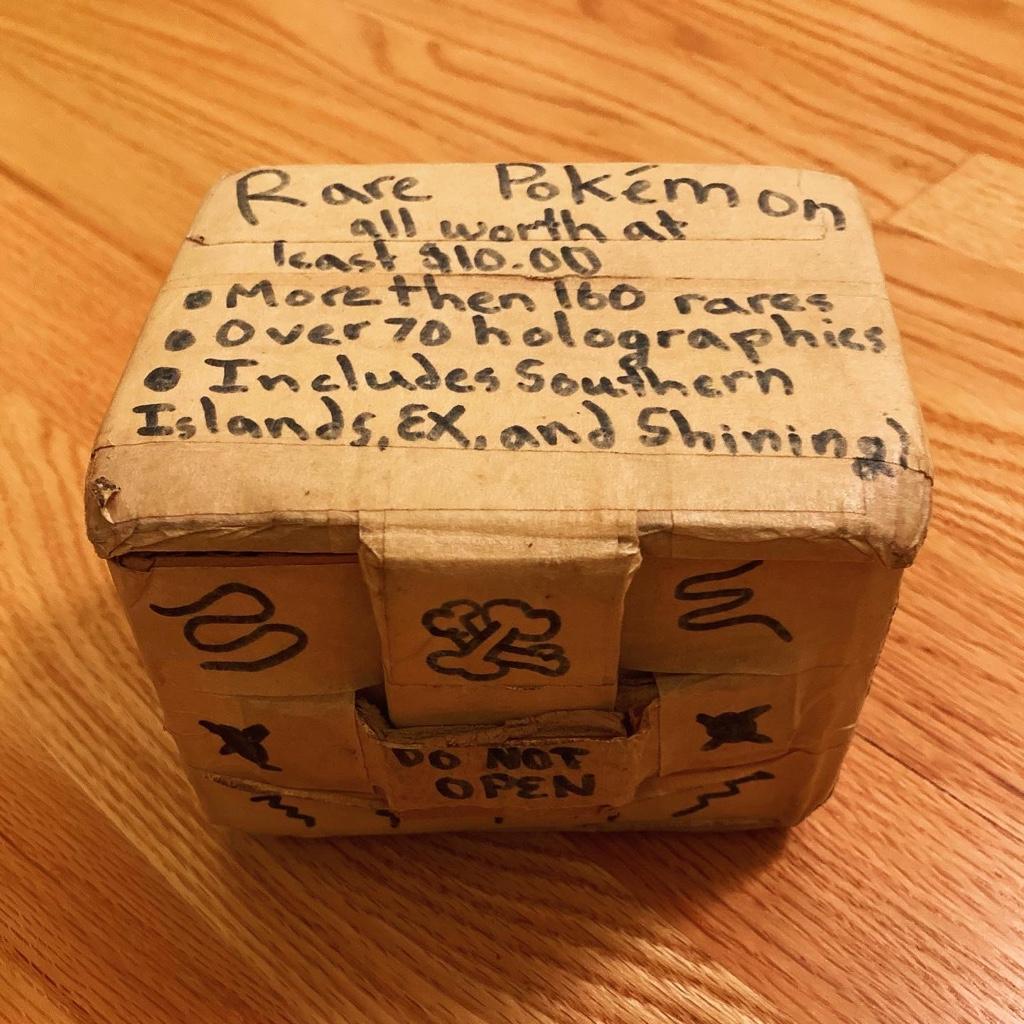 Rare Pokémon
all worth at
least $10.00
• More then 160 rares
• Over 70 holographics
• Includes Southern
Islands, EX, and Shining)
DO NOT
OPEN